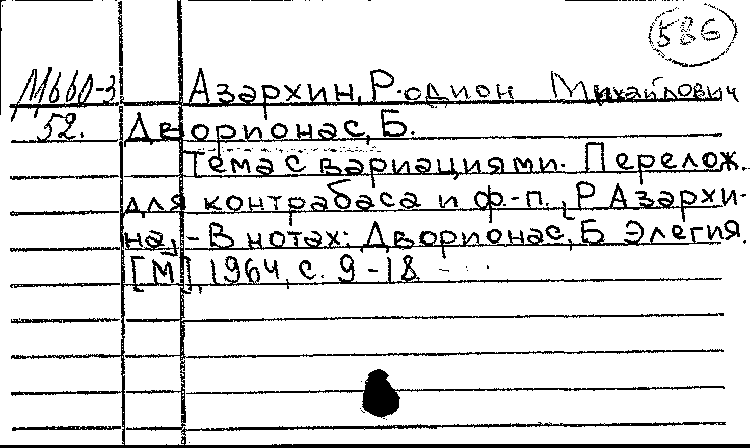 586
М660-3 Азархин, Родион Михайлович
52. Дворионас, Б.
Тема с вариациями. Перелож.
для контрабаса и ф.-п. [Р Азархи-
на, - В нотах: Дворионас, Б Элегия.
[М], 1964, с. 9-18